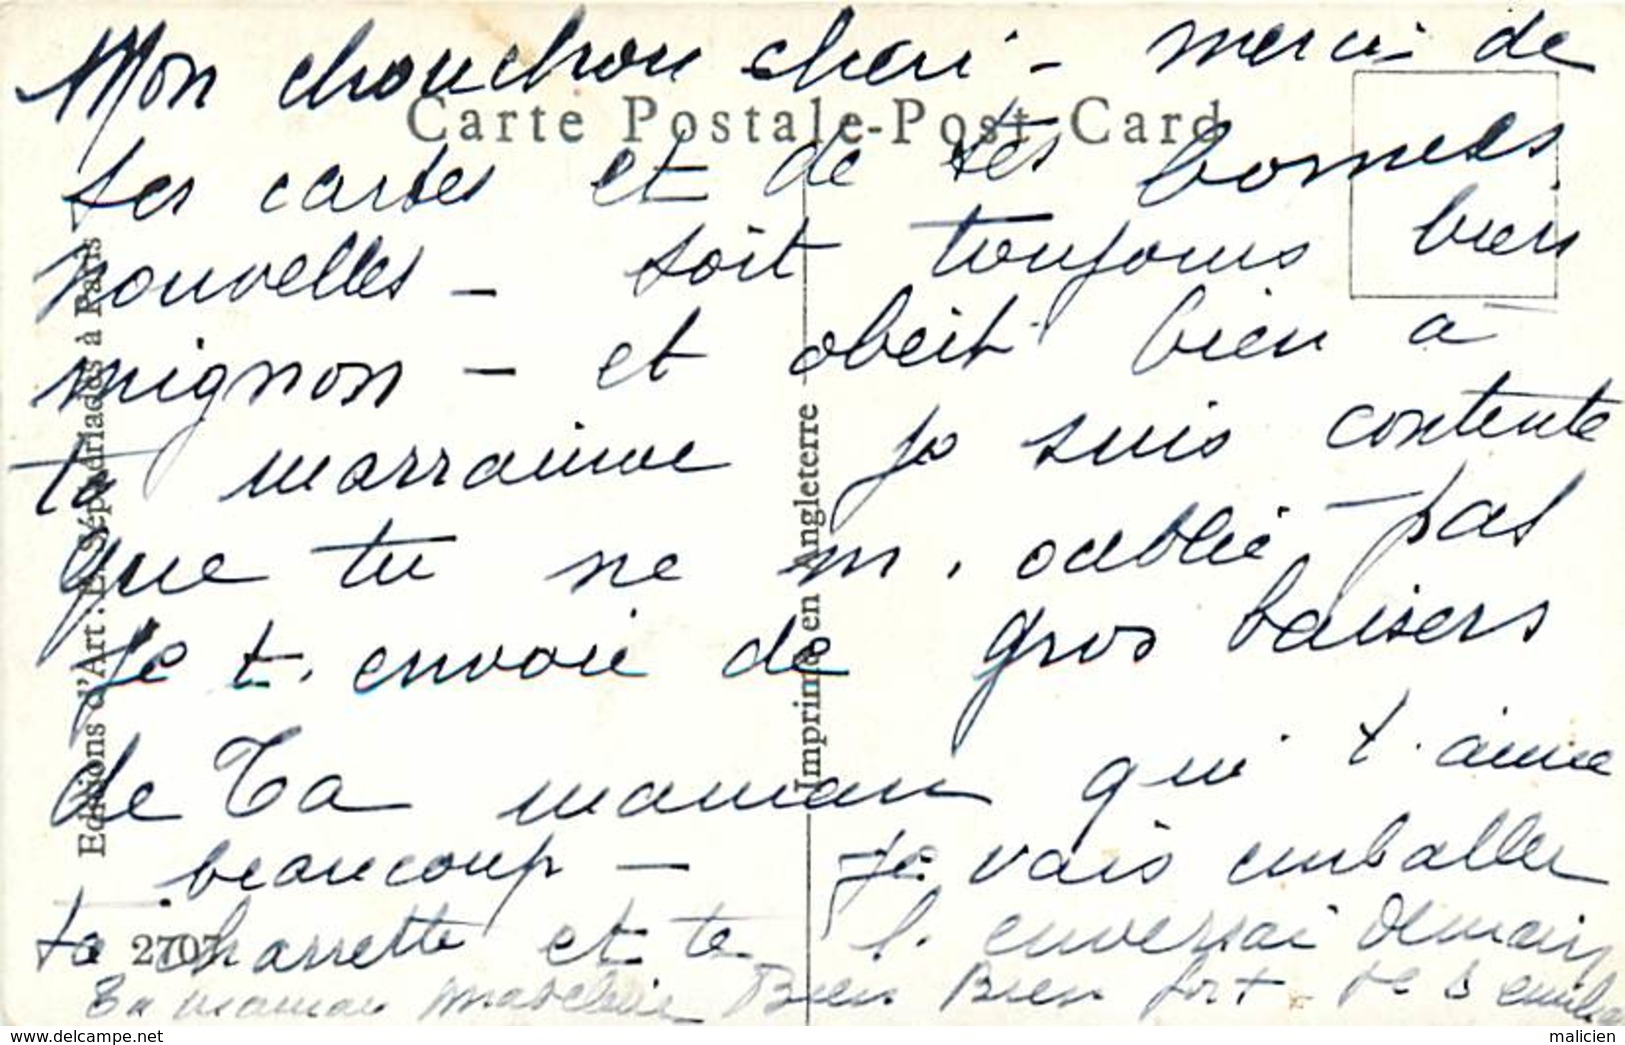 Mon chouchou cheri - merci de
Carte Postale-Post Card
tes cartes et de tes bonnes
nouvelles - soit toujours bien
mignon - et obeit bien à
ta marraine je suis contente
que tu ne m'oublie pas
Je t'envoie de gros baisers
de Ta maman qui t'aime
beaucoup - Je vais emballer
ta charrette et te l'enverrai demain
Ta maman Bien Bien fort
2707
Editions d'Art : à Paris
Imprimé en Angleterre
www.delcampe.net
malicien